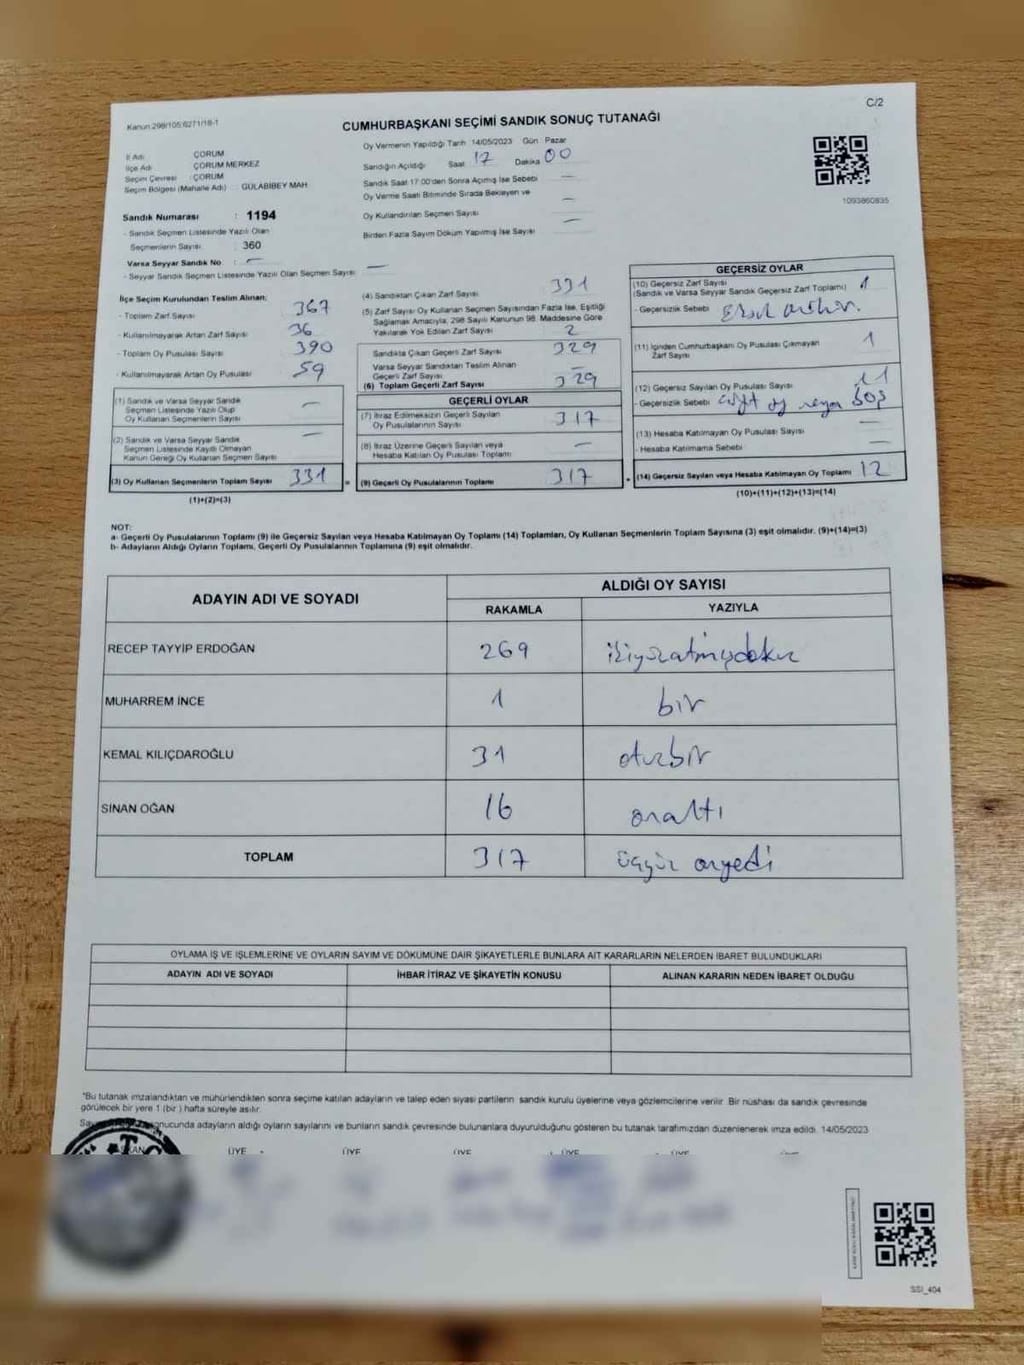 C/2
Kanun:298/105;6271/18-1
CUMHURBAŞKANI SEÇİMİ SANDIK SONUÇ TUTANAĞI
İl Adı : ÇORUM
İlçe Adı : ÇORUM MERKEZ
Seçim Çevresi : ÇORUM
Seçim Bölgesi (Mahalle Adı) : GÜLABİBEY MAH.
Oy Vermenin Yapıldığı Tarih 14/05/2023 Gün Pazar
Sandığın Açıldığı Saat 17 Dakika 00
Sandık Saat 17:00'den Sonra Açılmış İse Sebebi —
Oy Verme Saati Bitiminde Sırada Bekleyen ve
Oy Kullandırılan Seçmen Sayısı —
Birden Fazla Sayım Döküm Yapılmış İse Sayısı —
1093860835
Sandık Numarası : 1194
- Sandık Seçmen Listesinde Yazılı Olan
Seçmenlerin Sayısı : 360
Varsa Seyyar Sandık No : —
- Seyyar Sandık Seçmen Listesinde Yazılı Olan Seçmen Sayısı —
İlçe Seçim Kurulundan Teslim Alınan;
- Toplam Zarf Sayısı 367
- Kullanılmayarak Artan Zarf Sayısı 36
- Toplam Oy Pusulası Sayısı 390
- Kullanılmayarak Artan Oy Pusulası 59
(1) Sandık ve Varsa Seyyar Sandık
Seçmen Listesinde Yazılı Olup
Oy Kullanan Seçmenlerin Sayısı —
(2) Sandık ve Varsa Seyyar Sandık
Seçmen Listesinde Kayıtlı Olmayan
Kanun Gereği Oy Kullanan Seçmen Sayısı —
(3) Oy Kullanan Seçmenlerin Toplam Sayısı 331
(1)+(2)=(3)
(4) Sandıktan Çıkan Zarf Sayısı 331
(5) Zarf Sayısı Oy Kullanan Seçmen Sayısından Fazla İse, Eşitliği
Sağlamak Amacıyla, 298 Sayılı Kanunun 98. Maddesine Göre
Yakılarak Yok Edilen Zarf Sayısı 2
Sandıkta Çıkan Geçerli Zarf Sayısı 329
Varsa Seyyar Sandıktan Teslim Alınan
Geçerli Zarf Sayısı —
(6) Toplam Geçerli Zarf Sayısı 329
GEÇERLİ OYLAR
(7) İtiraz Edilmeksizin Geçerli Sayılan
Oy Pusulalarının Sayısı 317
(8) İtiraz Üzerine Geçerli Sayılan veya
Hesaba Katılan Oy Pusulası Toplamı —
= (9) Geçerli Oy Pusulalarının Toplamı 317
GEÇERSİZ OYLAR
(10) Geçersiz Zarf Sayısı
(Sandık ve Varsa Seyyar Sandık Geçersiz Zarf Toplamı) 1
- Geçersizlik Sebebi
(11) İçinden Cumhurbaşkanı Oy Pusulası Çıkmayan
Zarf Sayısı 1
(12) Geçersiz Sayılan Oy Pusulası Sayısı 11
- Geçersizlik Sebebi çift oy veya boş
(13) Hesaba Katılmayan Oy Pusulası Sayısı —
- Hesaba Katılmama Sebebi —
+ (14) Geçersiz Sayılan veya Hesaba Katılmayan Oy Toplamı 12
(10)+(11)+(12)+(13)=(14)
NOT:
a- Geçerli Oy Pusulalarının Toplamı (9) ile Geçersiz Sayılan veya Hesaba Katılmayan Oy Toplamı (14) Toplamları, Oy Kullanan Seçmenlerin Toplam Sayısına (3) eşit olmalıdır. (9)+(14)=(3)
b- Adayların Aldığı Oyların Toplamı, Geçerli Oy Pusulalarının Toplamına (9) eşit olmalıdır.
ADAYIN ADI VE SOYADI
ALDIĞI OY SAYISI
RAKAMLA YAZIYLA
RECEP TAYYİP ERDOĞAN 269 ikiyüzatmışdokuz
MUHARREM İNCE 1 bir
KEMAL KILIÇDAROĞLU 31 otuzbir
SİNAN OĞAN 16 onaltı
TOPLAM 317 üçyüz onyedi
OYLAMA İŞ VE İŞLEMLERİNE VE OYLARIN SAYIM VE DÖKÜMÜNE DAİR ŞİKAYETLERLE BUNLARA AİT KARARLARIN NELERDEN İBARET BULUNDUKLARI
ADAYIN ADI VE SOYADI İHBAR İTİRAZ VE ŞİKAYETİN KONUSU ALINAN KARARIN NEDEN İBARET OLDUĞU
*Bu tutanak imzalandıktan ve mühürlendikten sonra seçime katılan adayların ve talep eden siyasi partilerin sandık kurulu üyelerine veya gözlemcilerine verilir. Bir nüshası da sandık çevresinde
görülecek bir yere 1 (bir) hafta süreyle asılır.
sonucunda adayların aldığı oyların sayılarını ve bunların sandık çevresinde bulunanlara duyurulduğunu gösteren bu tutanak tarafımızdan düzenlenerek imza edildi. 14/05/2023
ÜYE ÜYE ÜYE ÜYE ÜYE ÜYE
SSI_404